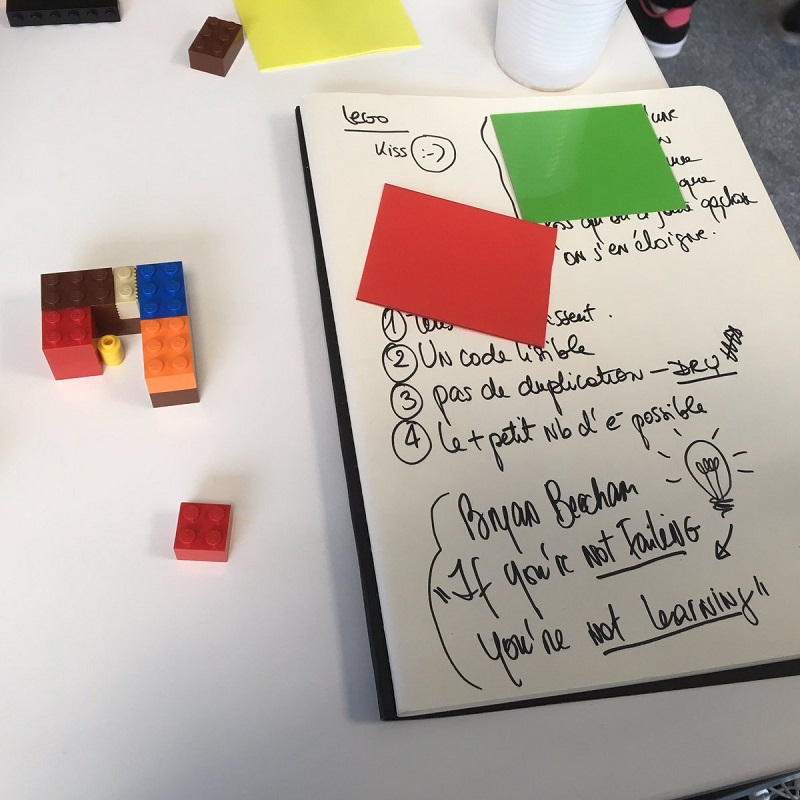 Lego
Kiss :-)
que
approche
on s'en éloigne.
① issent.
② Un code lisible
③ pas de duplication — DRY
④ le + petit Nb d'e- possible
Bryan Beecham
"If you're not Failing
you're not learning"